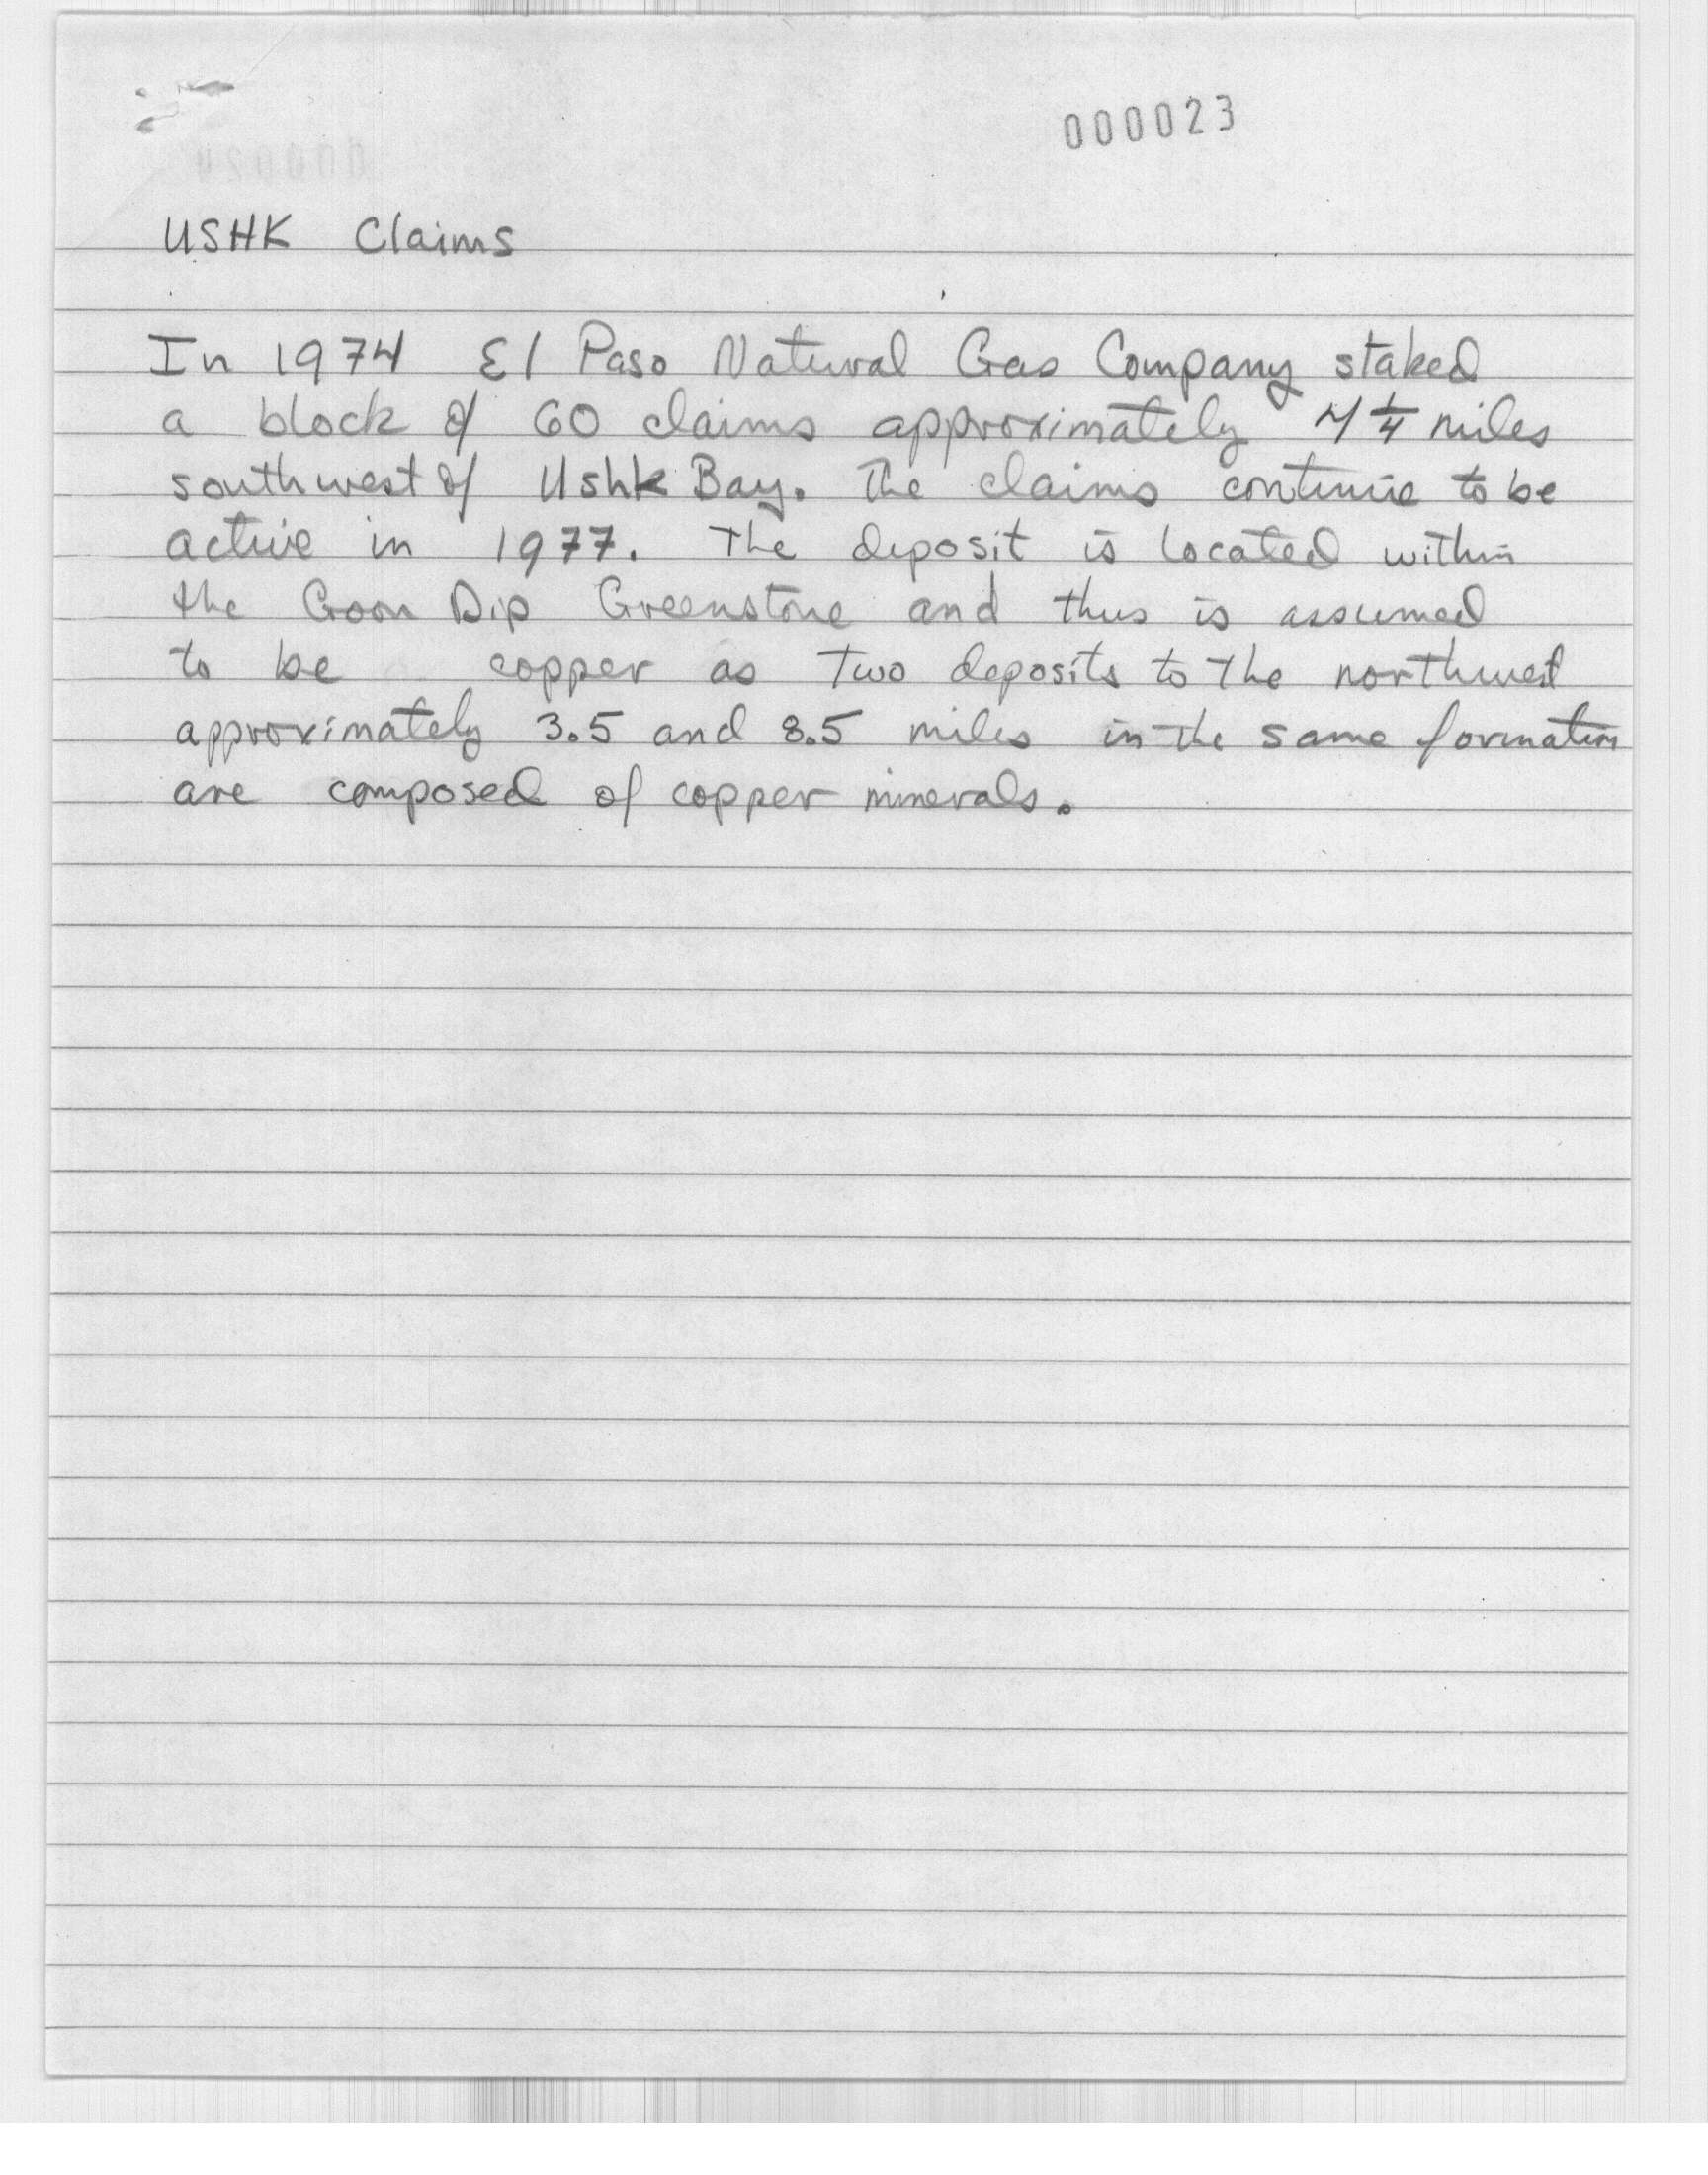 000023
USHK Claims
In 1974 El Paso Natural Gas Company staked
a block of 60 claims approximately 4 1/4 miles
southwest of Ushk Bay. The claims continue to be
active in 1977. The deposit is located within
the Goon Dip Greenstone and thus is assumed
to be copper as two deposits to the northwest
approximately 3.5 and 8.5 miles in the same formation
are composed of copper minerals.